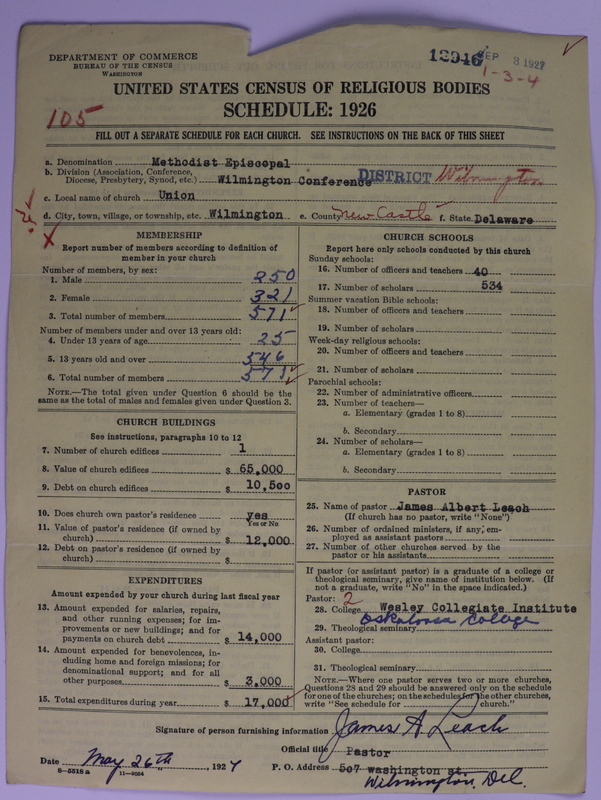 DEPARTMENT OF COMMERCE
BUREAU OF THE CENSUS
WASHINGTON
SEP 8 1927
1-3-4
UNITED STATES CENSUS OF RELIGIOUS BODIES
SCHEDULE: 1926
105
FILL OUT A SEPARATE SCHEDULE FOR EACH CHURCH. SEE INSTRUCTIONS ON THE BACK OF THIS SHEET
a. Denomination Methodist Episcopal
b. Division (Association, Conference, Diocese, Presbytery, Synod, etc.) Wilmington Conference DISTRICT Wilmington
c. Local name of church Union
d. City, town, village, or township, etc. Wilmington e. County New Castle f. State Delaware
MEMBERSHIP
Report number of members according to definition of
member in your church
Number of members, by sex:
1. Male 250
2. Female 321
3. Total number of members 571
Number of members under and over 13 years old:
4. Under 13 years of age 25
5. 13 years old and over 546
6. Total number of members 571
NOTE.—The total given under Question 6 should be
the same as the total of males and females given under Question 3.
CHURCH BUILDINGS
See instructions, paragraphs 10 to 12
7. Number of church edifices 1
8. Value of church edifices $ 65,000
9. Debt on church edifices $ 10,500
10. Does church own pastor's residence? yes
Yes or No
11. Value of pastor's residence (if owned by
church) $ 12,000
12. Debt on pastor's residence (if owned by
church) $
EXPENDITURES
Amount expended by your church during last fiscal year
13. Amount expended for salaries, repairs,
and other running expenses; for im-
provements or new buildings; and for
payments on church debt $ 14,000
14. Amount expended for benevolences, in-
cluding home and foreign missions; for
denominational support; and for all
other purposes $ 3,000
15. Total expenditures during year $ 17,000
CHURCH SCHOOLS
Report here only schools conducted by this church
Sunday schools:
16. Number of officers and teachers 40
17. Number of scholars 534
Summer vacation Bible schools:
18. Number of officers and teachers
19. Number of scholars
Week-day religious schools:
20. Number of officers and teachers
21. Number of scholars
Parochial schools:
22. Number of administrative officers
23. Number of teachers—
a. Elementary (grades 1 to 8)
b. Secondary
24. Number of scholars—
a. Elementary (grades 1 to 8)
b. Secondary
PASTOR
25. Name of pastor James Albert Leach
(If church has no pastor, write "None")
26. Number of ordained ministers, if any, em-
ployed as assistant pastors
27. Number of other churches served by the
pastor or his assistants
If pastor (or assistant pastor) is a graduate of a college or
theological seminary, give name of institution below. (If
not a graduate, write "No" in the space indicated.)
Pastor: 2
28. College Wesley Collegiate Institute
Oskaloosa College
29. Theological seminary
Assistant pastor:
30. College
31. Theological seminary
NOTE.—Where one pastor serves two or more churches,
Questions 28 and 29 should be answered only on the schedule
for one of the churches; on the schedules for the other churches,
write "See schedule for church."
Signature of person furnishing information James A. Leach
Official title Pastor
Date May 26th, 1927 P. O. Address 507 washington st.
Wilmington, Del.
8-5318 a 11-9564